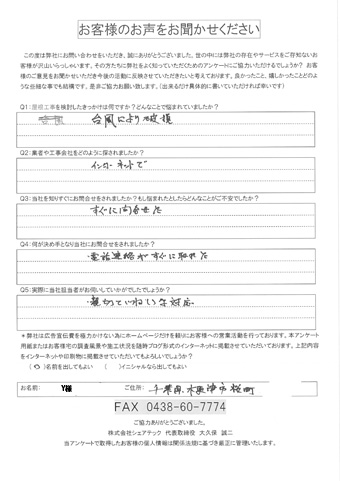 お客様のお声をお聞かせください
この度は弊社にお問い合わせをいただき、誠にありがとうございました。世の中には弊社の存在やサービスをご存知ないお
客様が沢山いらっしゃいます。その方たちに弊社をよく知っていただくためのアンケートにご協力いただけるでしょうか? お客
様のご意見をお聞かせいただき今後の活動に反映させていただきたいと考えております。良かったこと、嬉しかったことどのよ
うな些細な事でも結構です。是非ご協力お願い致します。(出来るだけ具体的に書いていただければ幸いです)
Q1:屋根工事を検討したきっかけは何ですか?どんなことで悩まれていましたか?
台風により破損
Q2:業者や工事会社をどのように探されましたか?
インターネットで
Q3:当社を知りすぐにお問合せをされましたか?もし悩まれたとしたらどんなことがご不安でしたか?
すぐに問合せた
Q4:何が決め手となり当社にお問合せをされましたか?
電話連絡がすぐに取れた
Q5:実際に当社担当者がお伺いしていかがでしたでしょうか?
親切ていねいな対応
*弊社は広告宣伝費を極力かけない為にホームページだけを頼りにお客様への営業活動を行っております。本アンケート
用紙またはお客様宅の調査風景や施工状況を随時ブログ形式のインターネットに掲載させていただいております。上記内容
をインターネットや印刷物に掲載させていただいてもよろしいでしょうか?
(○)名前を出してもよい ( )イニシャルなら出してもよい
お名前: Y様 ご住所: 千葉県木更津市桜町
FAX 0438-60-7774
ご協力ありがとうございました。
株式会社シェアテック 代表取締役 大久保 誠二
当アンケートで取得したお客様の個人情報は関係法規に基づき厳正に管理いたします。